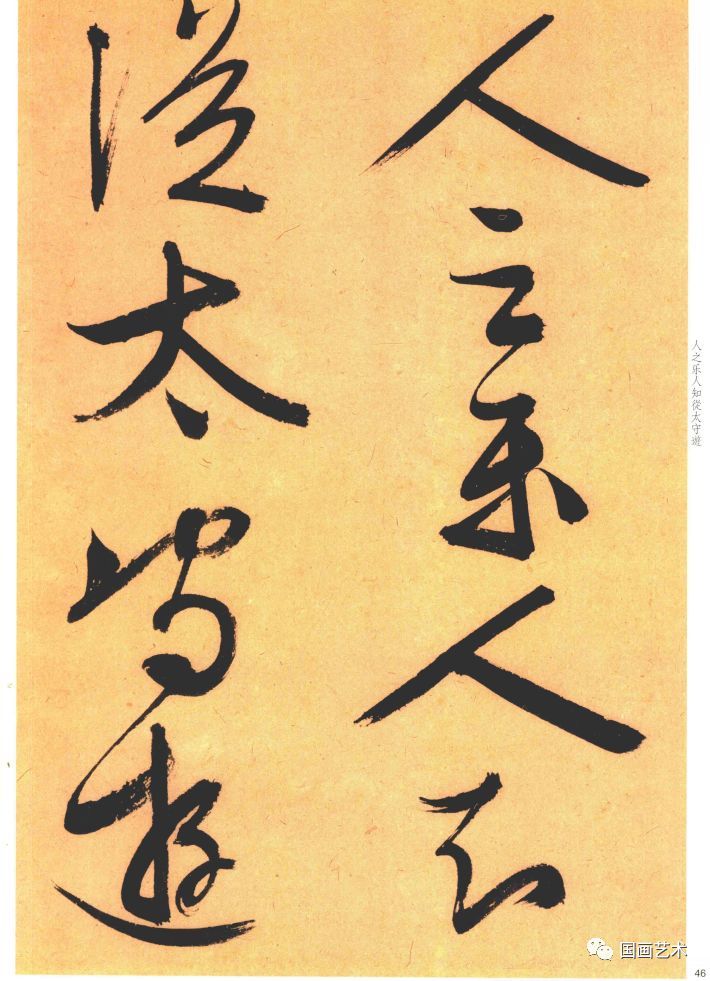 人之乐人知
從太守遊
人之乐人知從太守遊
国画艺术
46